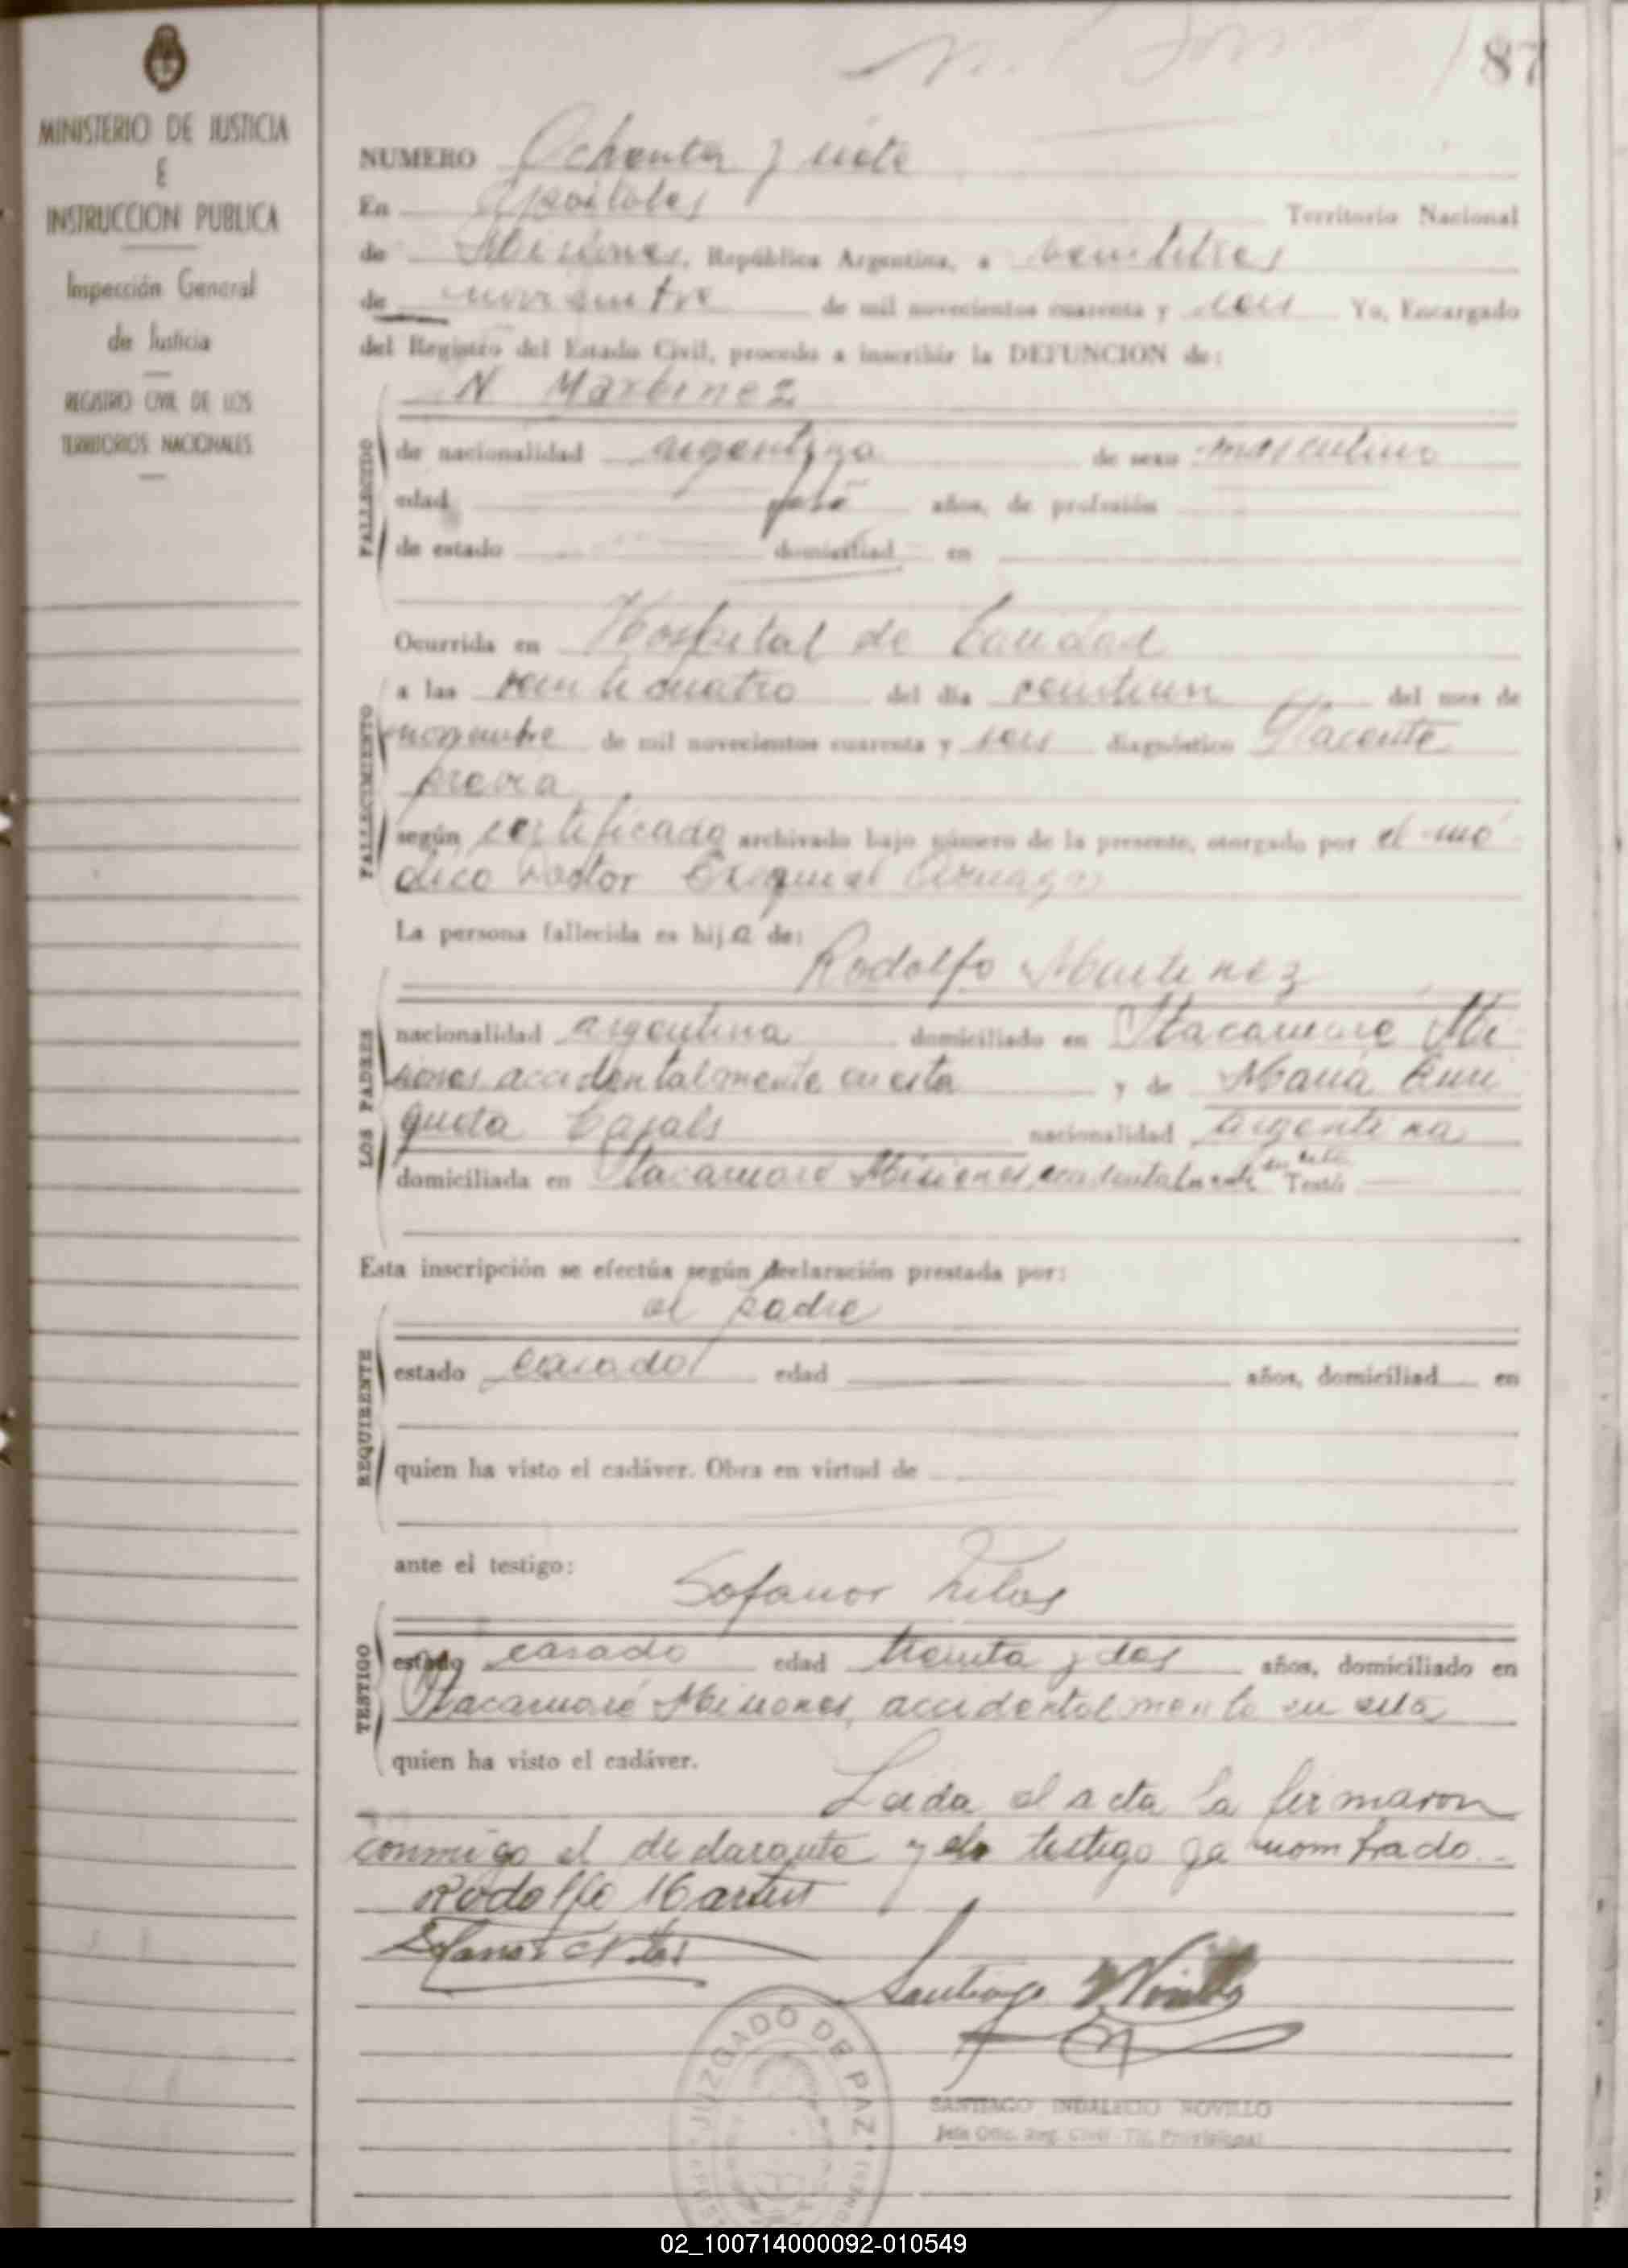 87
MINISTERIO DE JUSTICIA
E
INSTRUCCION PUBLICA
Inspección General
de Justicia
REGISTRO CIVIL DE LOS
TERRITORIOS NACIONALES
NUMERO Ochenta y siete
En Apóstoles Territorio Nacional
de Misiones, República Argentina, a veintitres
de noviembre de mil novecientos cuarenta y seis Yo, Encargado
del Registro del Estado Civil, procedo a inscribir la DEFUNCION de:
N Martinez
FALLECIDO
de nacionalidad argentina de sexo masculino
edad años, de profesión
de estado domiciliad en
Ocurrida en Hospital de Caridad
FALLECIMIENTO
a las veinticuatro del día veintiun del mes de
noviembre de mil novecientos cuarenta y seis diagnóstico Placente
previa
según certificado archivado bajo número de la presente, otorgado por el mé
dico Doctor
La persona fallecida es hija de:
Rodolfo Martinez
LOS PADRES
nacionalidad argentina domiciliado en Itacaruaré Mi
siones accidentalmente en esta y de María Enri
queta Casals nacionalidad argentina
domiciliada en Itacaruaré Misiones, accidentalmente en esta Testé
Esta inscripción se efectúa según declaración prestada por:
el padre
REQUIRENTE
estado casado edad años, domiciliad en
quien ha visto el cadáver. Obra en virtud de
ante el testigo:
Sofanor
TESTIGO
estado casado edad treinta y dos años, domiciliado en
Itacaruaré Misiones, accidentalmente en esta
quien ha visto el cadáver.
Leida el acta la firmaron
conmigo el declarante y el testigo ya nombrado.
Rodolfo Martins
Santiago Novillo
JUZGADO DE PAZ
SANTIAGO INDALECIO NOVILLO
Jefe Ofic. Reg. Civil
02_100714000092-010549